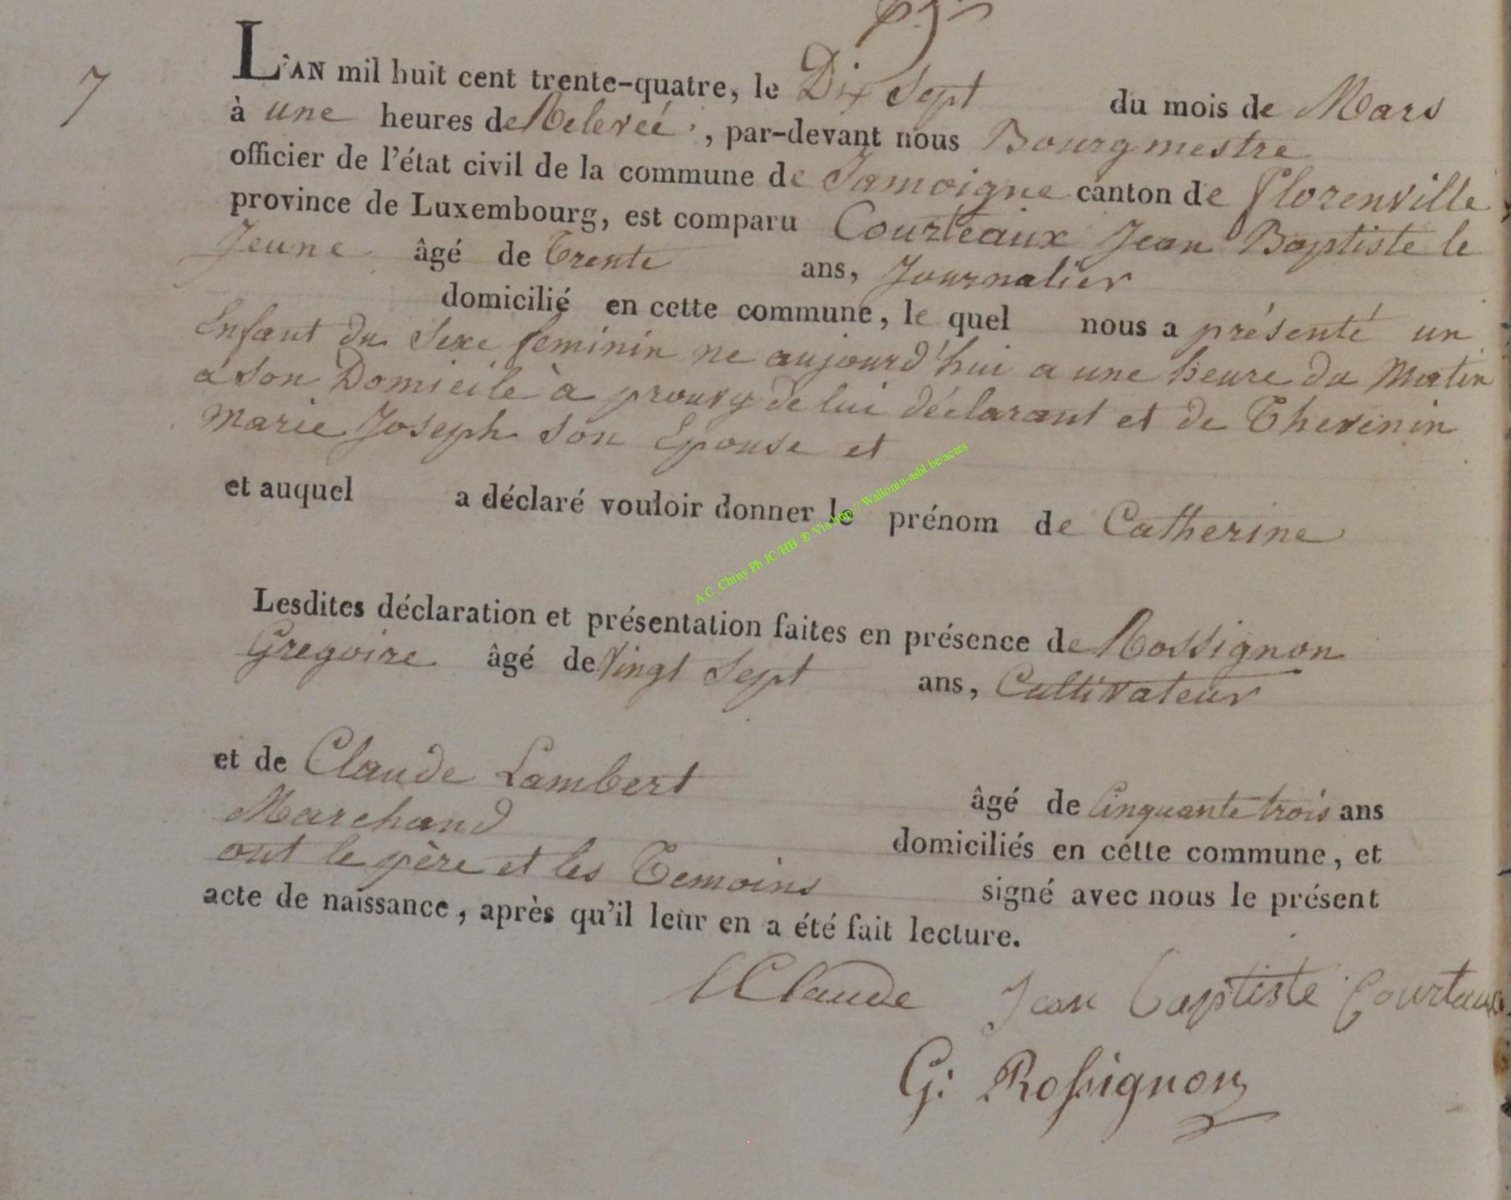 7
L'AN mil huit cent trente-quatre, le Dix Sept du mois de Mars
à une heures de Relevée, par-devant nous Bourgmestre
officier de l'état civil de la commune de Jamoigne canton de florenville
province de Luxembourg, est comparu Courteaux Jean Baptiste le
Jeune âgé de Trente ans, Journalier
domicilié en cette commune, le quel nous a présenté un
Enfant du Sexe feminin ne aujourd'hui a une heure du Matin
a son Domicile à prouvy de lui déclarant et de Thevenin
Marie Joseph son Epouse et
et auquel a déclaré vouloir donner le prénom de Catherine
A.C. Chiny Ph JC/HB ® Via http://Wallonia-asbl.be/actes
Lesdites déclaration et présentation faites en présence de Rossignon
Gregoire âgé de Vingt Sept ans, Cultivateur
et de Claude Lambert âgé de Cinquante trois ans
Marchand domiciliés en cette commune, et
ont le père et les Temoins signé avec nous le présent
acte de naissance, après qu'il leur en a été fait lecture.
LClaude Jean baptiste Courteaux
G: Rossignon